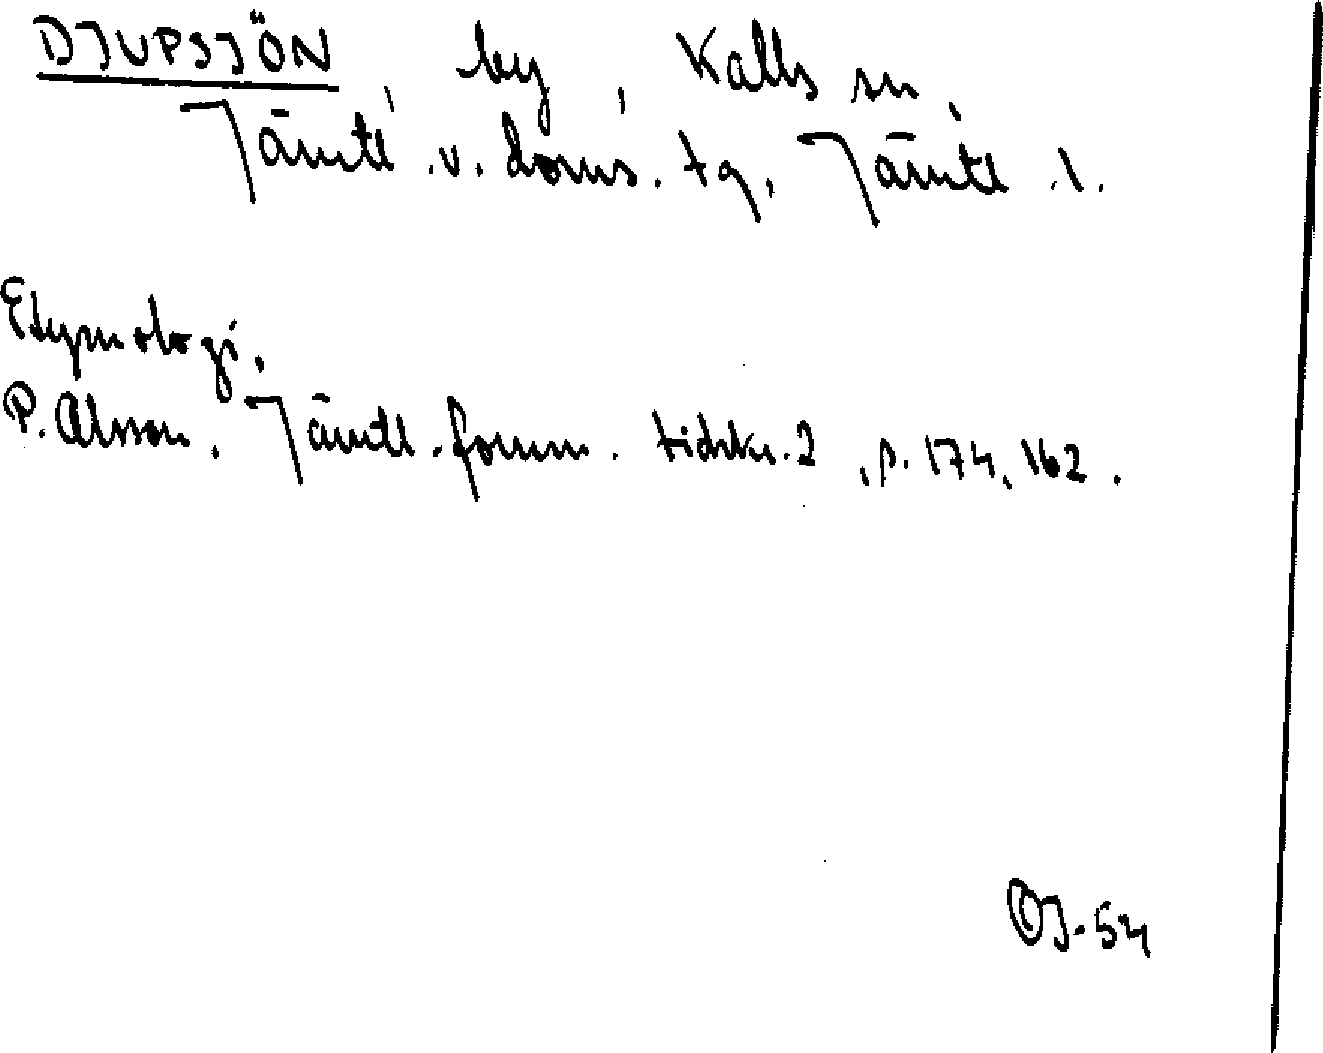 DJUPSJÖN, by, Kalls sn,
Jämtl. v. doms. tg, Jämtl. l.
Etymologi.
P. Olsson, Jämtl. fornm. tidskr. 2, s. 174, 162.
OJ-54